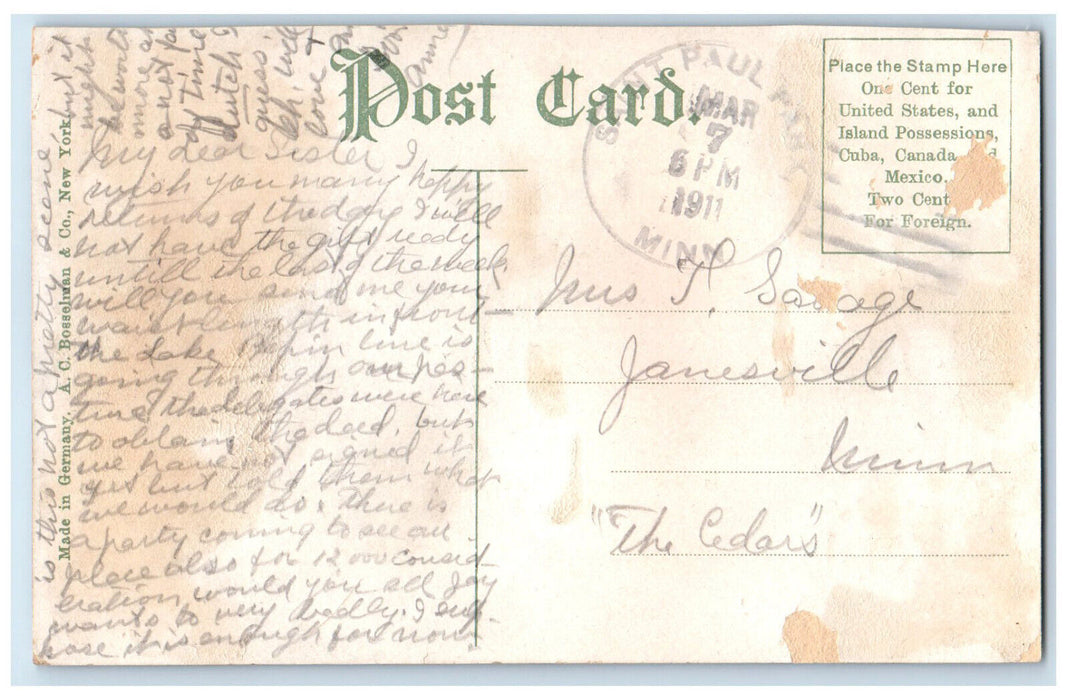 Post Card.
Place the Stamp Here
One Cent for
United States, and
Island Possessions,
Cuba, Canada
Mexico.
Two Cent
For Foreign.
SAINT PAUL PARK
MAR
7
6 PM
1911
MINN
My dear Sister I
wish you many happy
returns of the day I will
not have the gift ready
untill the last of the week
will you send me your
waist length in front
The Lake Pepin line is
going through our pas-
ture the delegates were here
to obtain the deed, but
we have not signed it
yet but told them what
we would do. There is
a party coming to see our
place also for 12 000 consid
eration would you sell Jay
wants to very badly. I sup
pose it is enough for now
is this not a pretty scene,
but it
might
be worth
more an
a not
dutch
guess
Eh. will
love &
Mrs T. Savage
Janesville
Minn
"The Cedars"
Made in Germany, A. C. Bosselman & Co., New York.